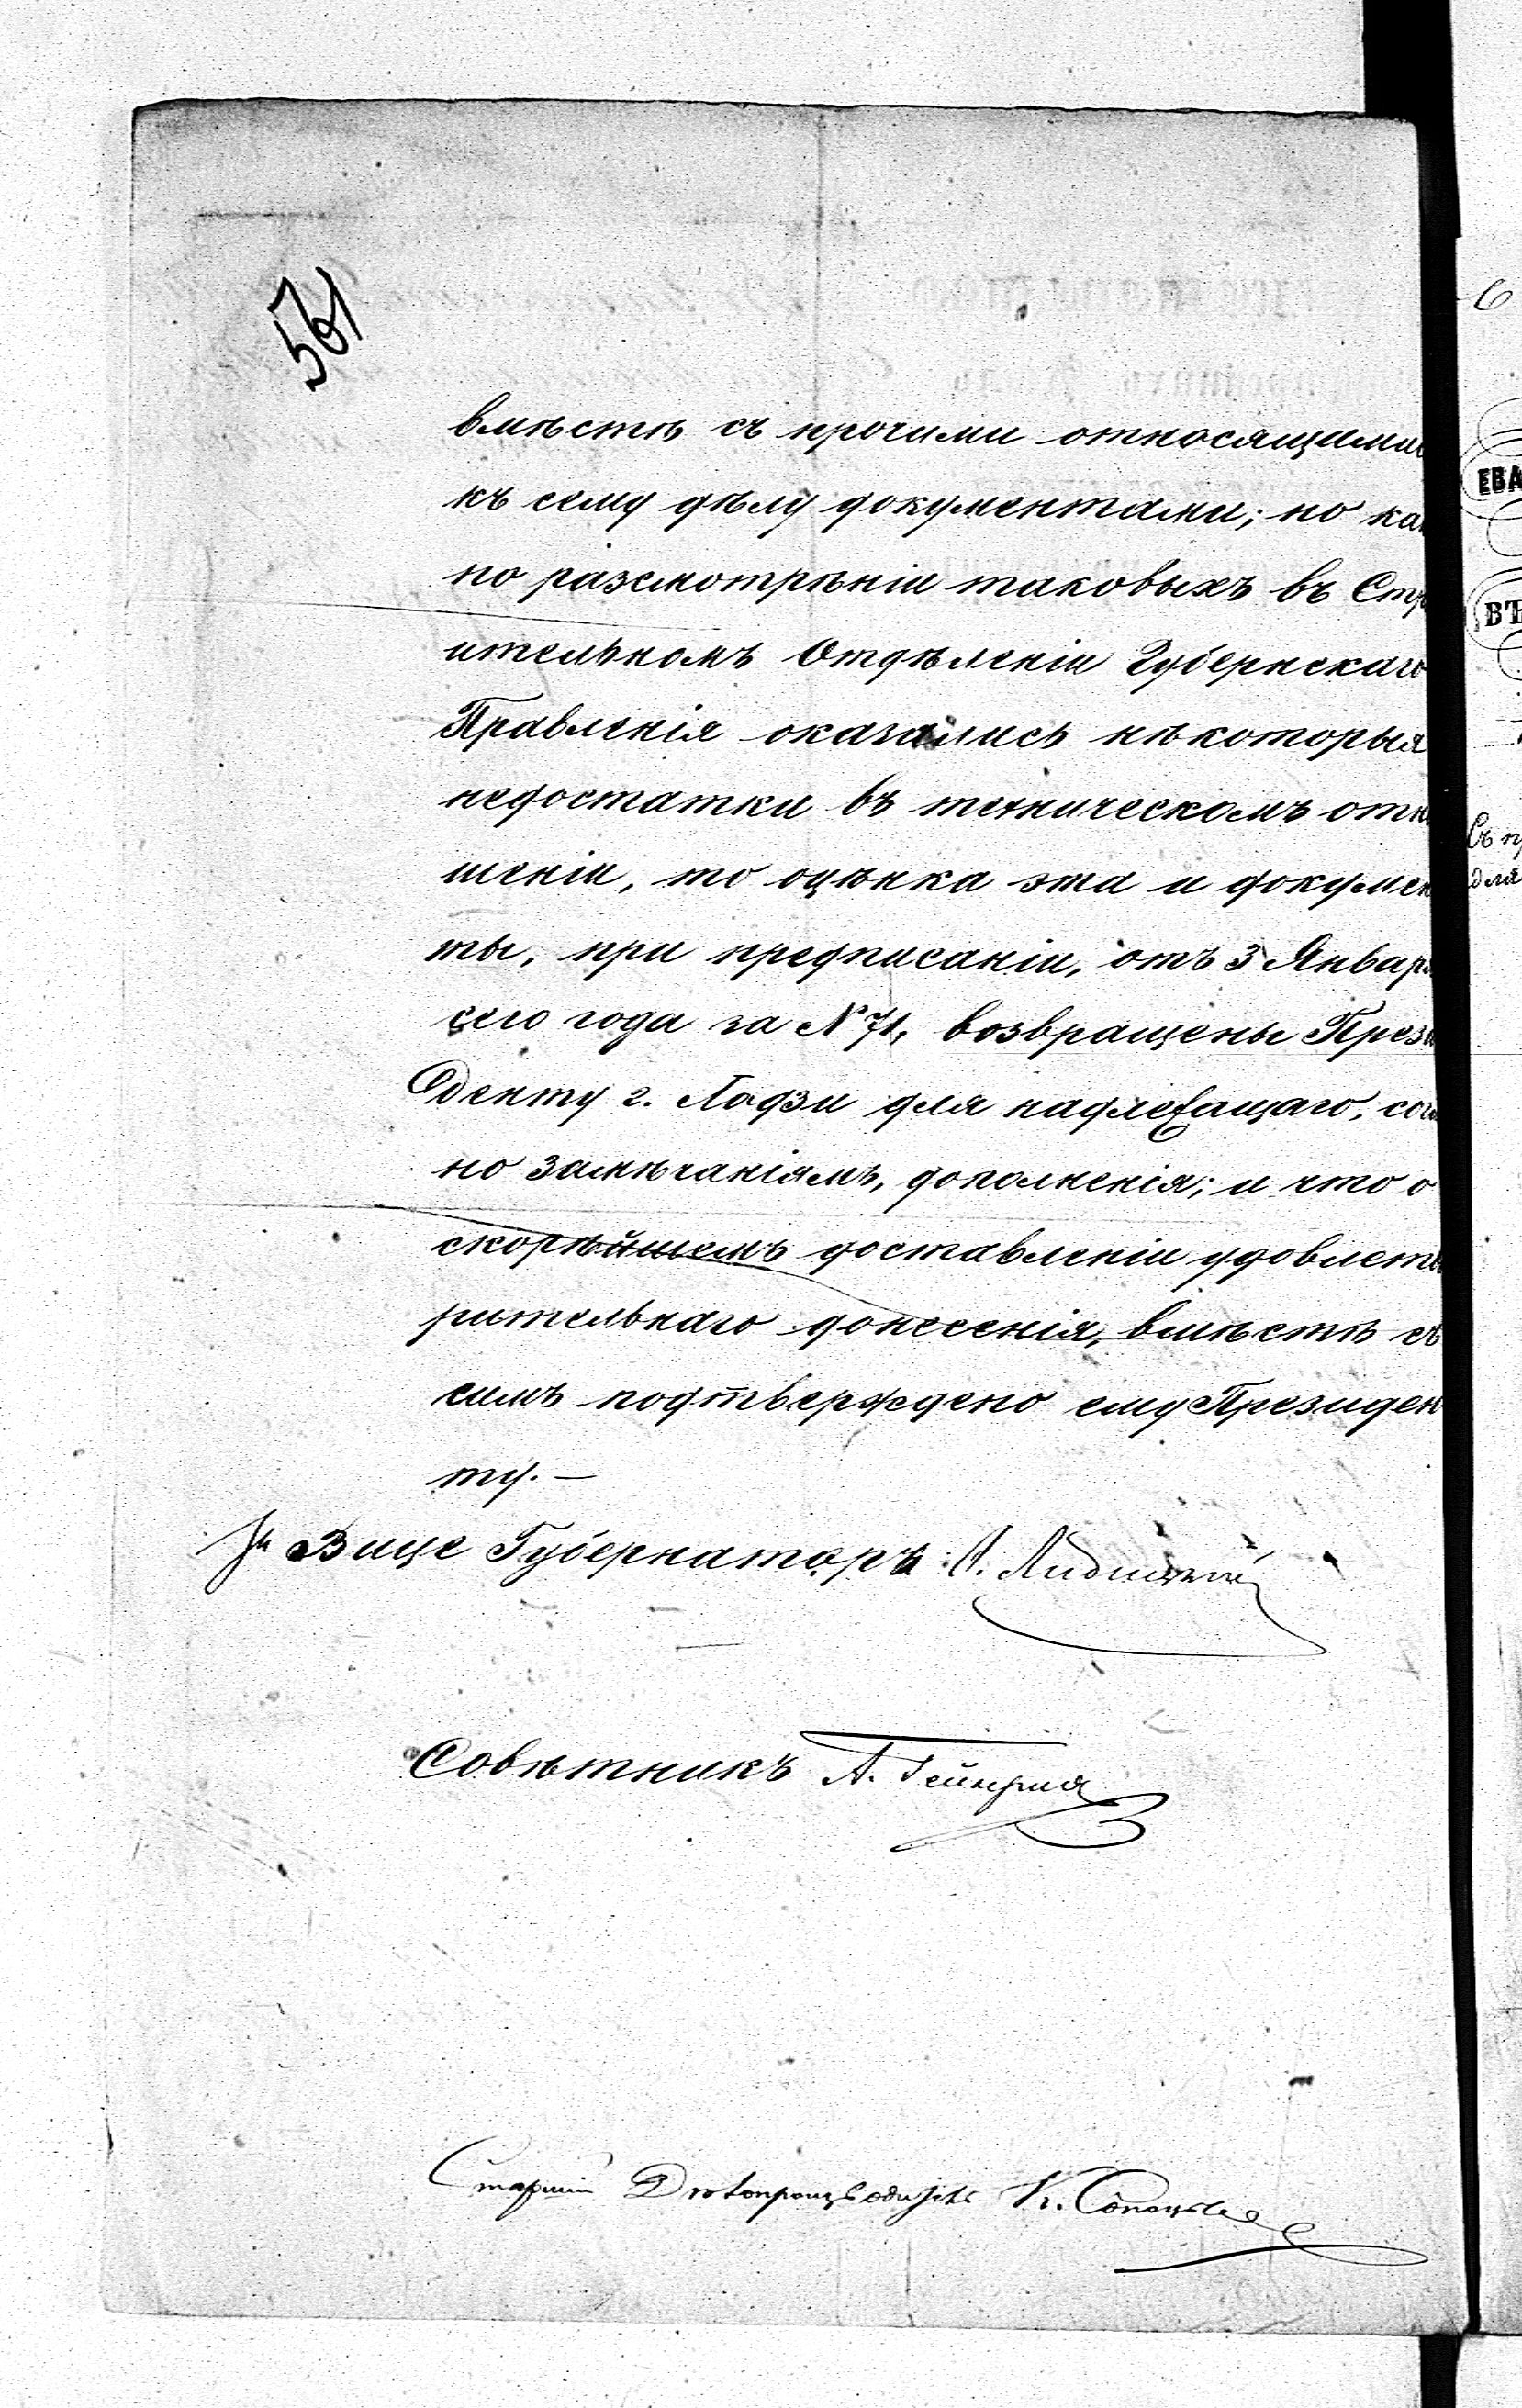 561
вмѣстѣ съ прочими относящими
къ сему дѣлу документами; но ка
по разсмотрѣніи таковыхъ въ Стр
ительномъ Отдѣленіи Губернскаго
Правленія оказались нѣкоторыя
недостатки въ техническомъ отн
шеніи, то оцѣнка эта и докумен
ты, при предписаніи, отъ 3 Январ
сего года за № 71, возвращены Прези
денту г. Лодзи для надлежащаго, сог
но замѣчаніямъ, дополненія; и что о
скорѣйшемъ доставленіи удовлетв
рительнаго донесенія, вмѣстѣ съ
симъ подтверждено ему Президен
ту.—
За Вице Губернатора
Совѣтникъ А.
Старшій Дѣлопроизводитель К.
ЕВА
ВЪ
Съ п
для